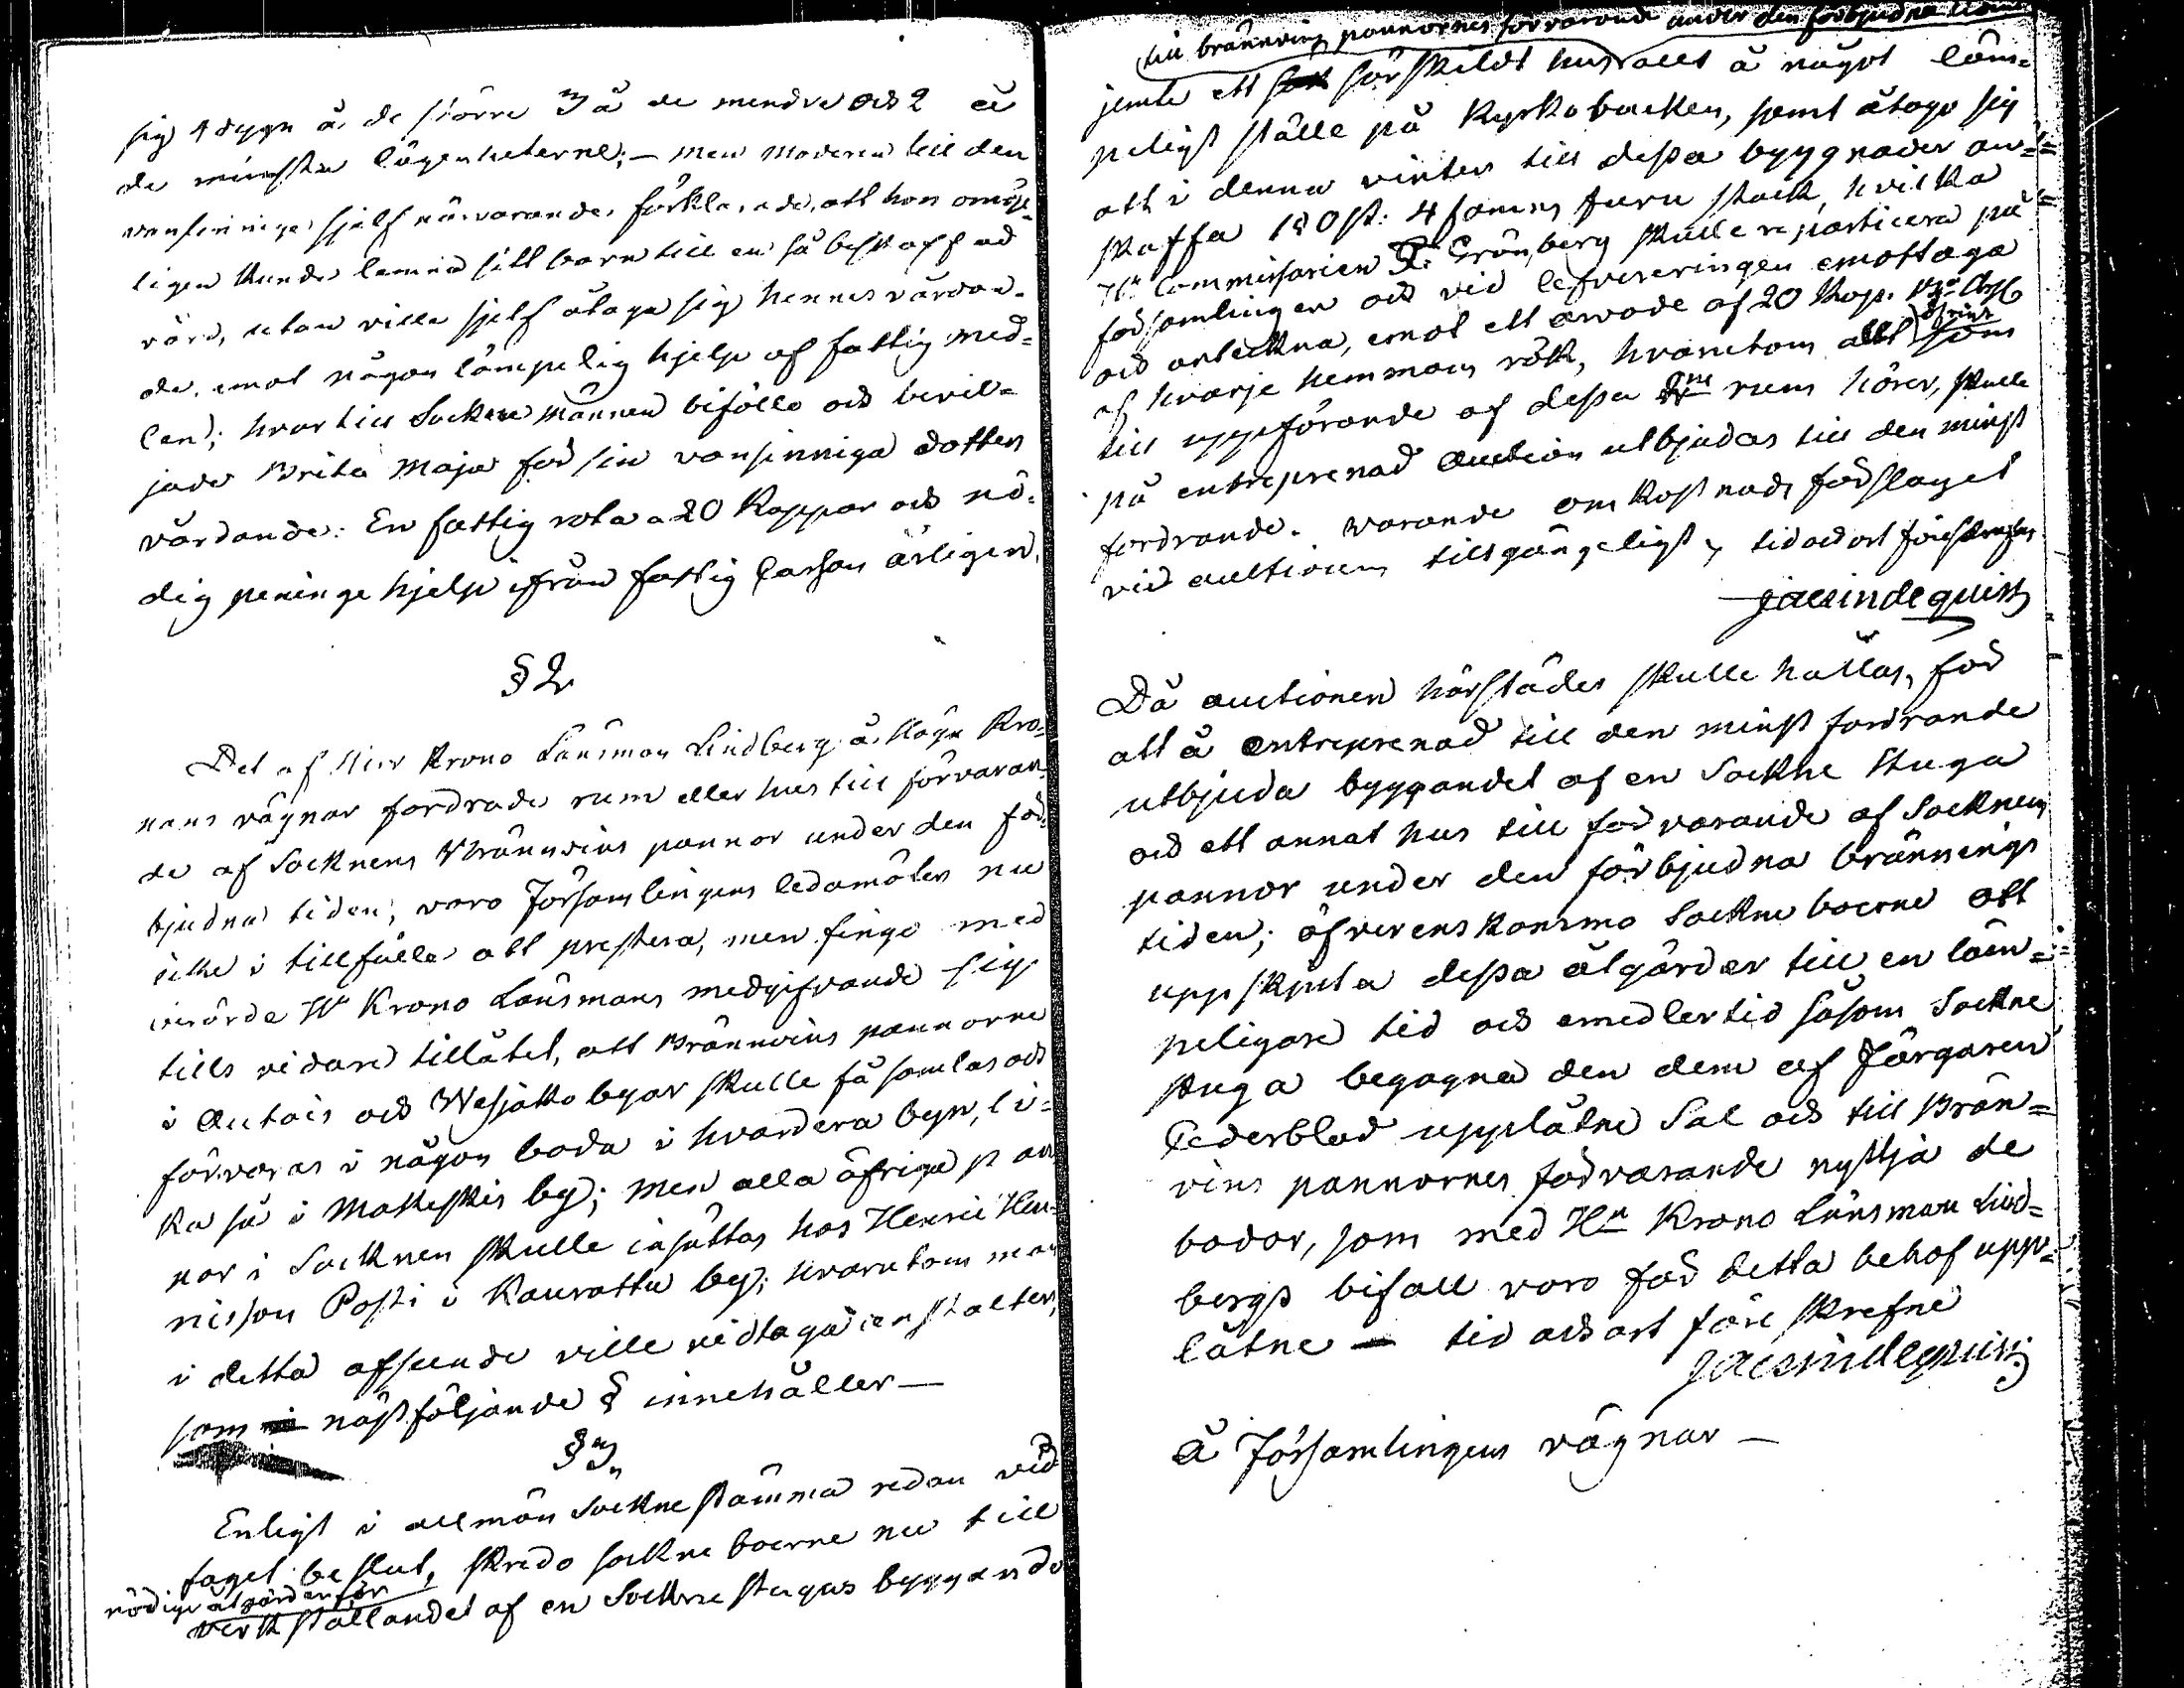 sig 4 dygn å de större 3 å de mindre och 2 å
de minsta lägenheterne; — men modren till den
vansinniga sjelf närvarande, förklarade, att hon omöje-
ligen kunde lemna sitt barn till en så beskaffad
vård, utan ville sjelf åtaga sig hennes vårdan-
de, emot någon lämpelig hjelp af fattig med-
len; hvartill Sockne männen biföllo och bevil-
jade Brita Maja för sin vansinniga dotters
vårdande: En fattig rota a 20 Kappar och nö-
dig peninge hjelp ifrån fattig Cassan årligen.
§ 2
Det af Herr Krono Länsman Lindberg å Höga Kro-
nans vägnar fordrade rum eller hus till förvaran-
de af Socknens Brännvins pannor under den för-
bjudna tiden, voro Församlingens ledamöter nu
icke i tillfälle att prestera, men fingo med
Hr Krono Länsmans medgifvande sig
tills vidare tillåtet, att Brännvins pannorne
i Autois och Wesjakko byar skulle få samlas och
förvaras i någon boda i hvardera byn, li-
ka så i Matkuskis by; men alla öfriga pan-
nor i Socknen skulle insättas hos Henric Hen-
ricsson Posti i Kaurattu by; hvarutom man
i detta afseende ville vidtaga anstalter,
som nästföljande § innehåller —
§ 3
Enligt i allmän Sockne stämma redan vid
taget beslut, skredo sockne boerne nu till
nödiga åtgärder för
verkställandet af en Sockne stugas byggande
till bränvins pannornes förvarande under den förbjudna tiden
jemte ett särskildt hus allt å något läm-
peligt ställe på Kyrkobacken, samt åtogo sig
att i denna vinter till dessa byggnader an-
skaffa 180 st: 4 famns furu stock, hvilka
Hr Commissarien Grönberg skulle reparticera på
församlingen och vid lefvereringen emottaga
och anteckna, emot ett arvode af 20 Kop.
af hvarje hemmans rök, hvarutom allt öfrigt som
till uppförande af dessa rum hörer, skulle
på entreprenad auction utbjudas till den minst
fordrande. Warande omkostnads förslaget
vid auctionen tillgängeligt, tid och ort föreskrefne
Jac Lindequist
Då auctionen härstädes skulle hållas, för
att å entreprenad till den minst fordrande
utbjuda byggandet af en Sockne stuga
och ett annat hus till förvarande af Socknens
pannor under den förbjudna brännings
tiden; öfverenskommo Sockne boerne att
uppskjuta dessa åtgärder till en läm-
peligare tid och emedlertid såsom Sockne
stuga begagna den dem af Färgaren
Cederblad upplåtne Sal och till Brän-
vins pannornes förvarande nyttja de
bodar, som med Hrr Krono Länsman Lind-
bergs bifall voro för detta behof upp-
låtne — tid och ort före skrefne
Jac Lindequist
Å Församlingens vägnar —